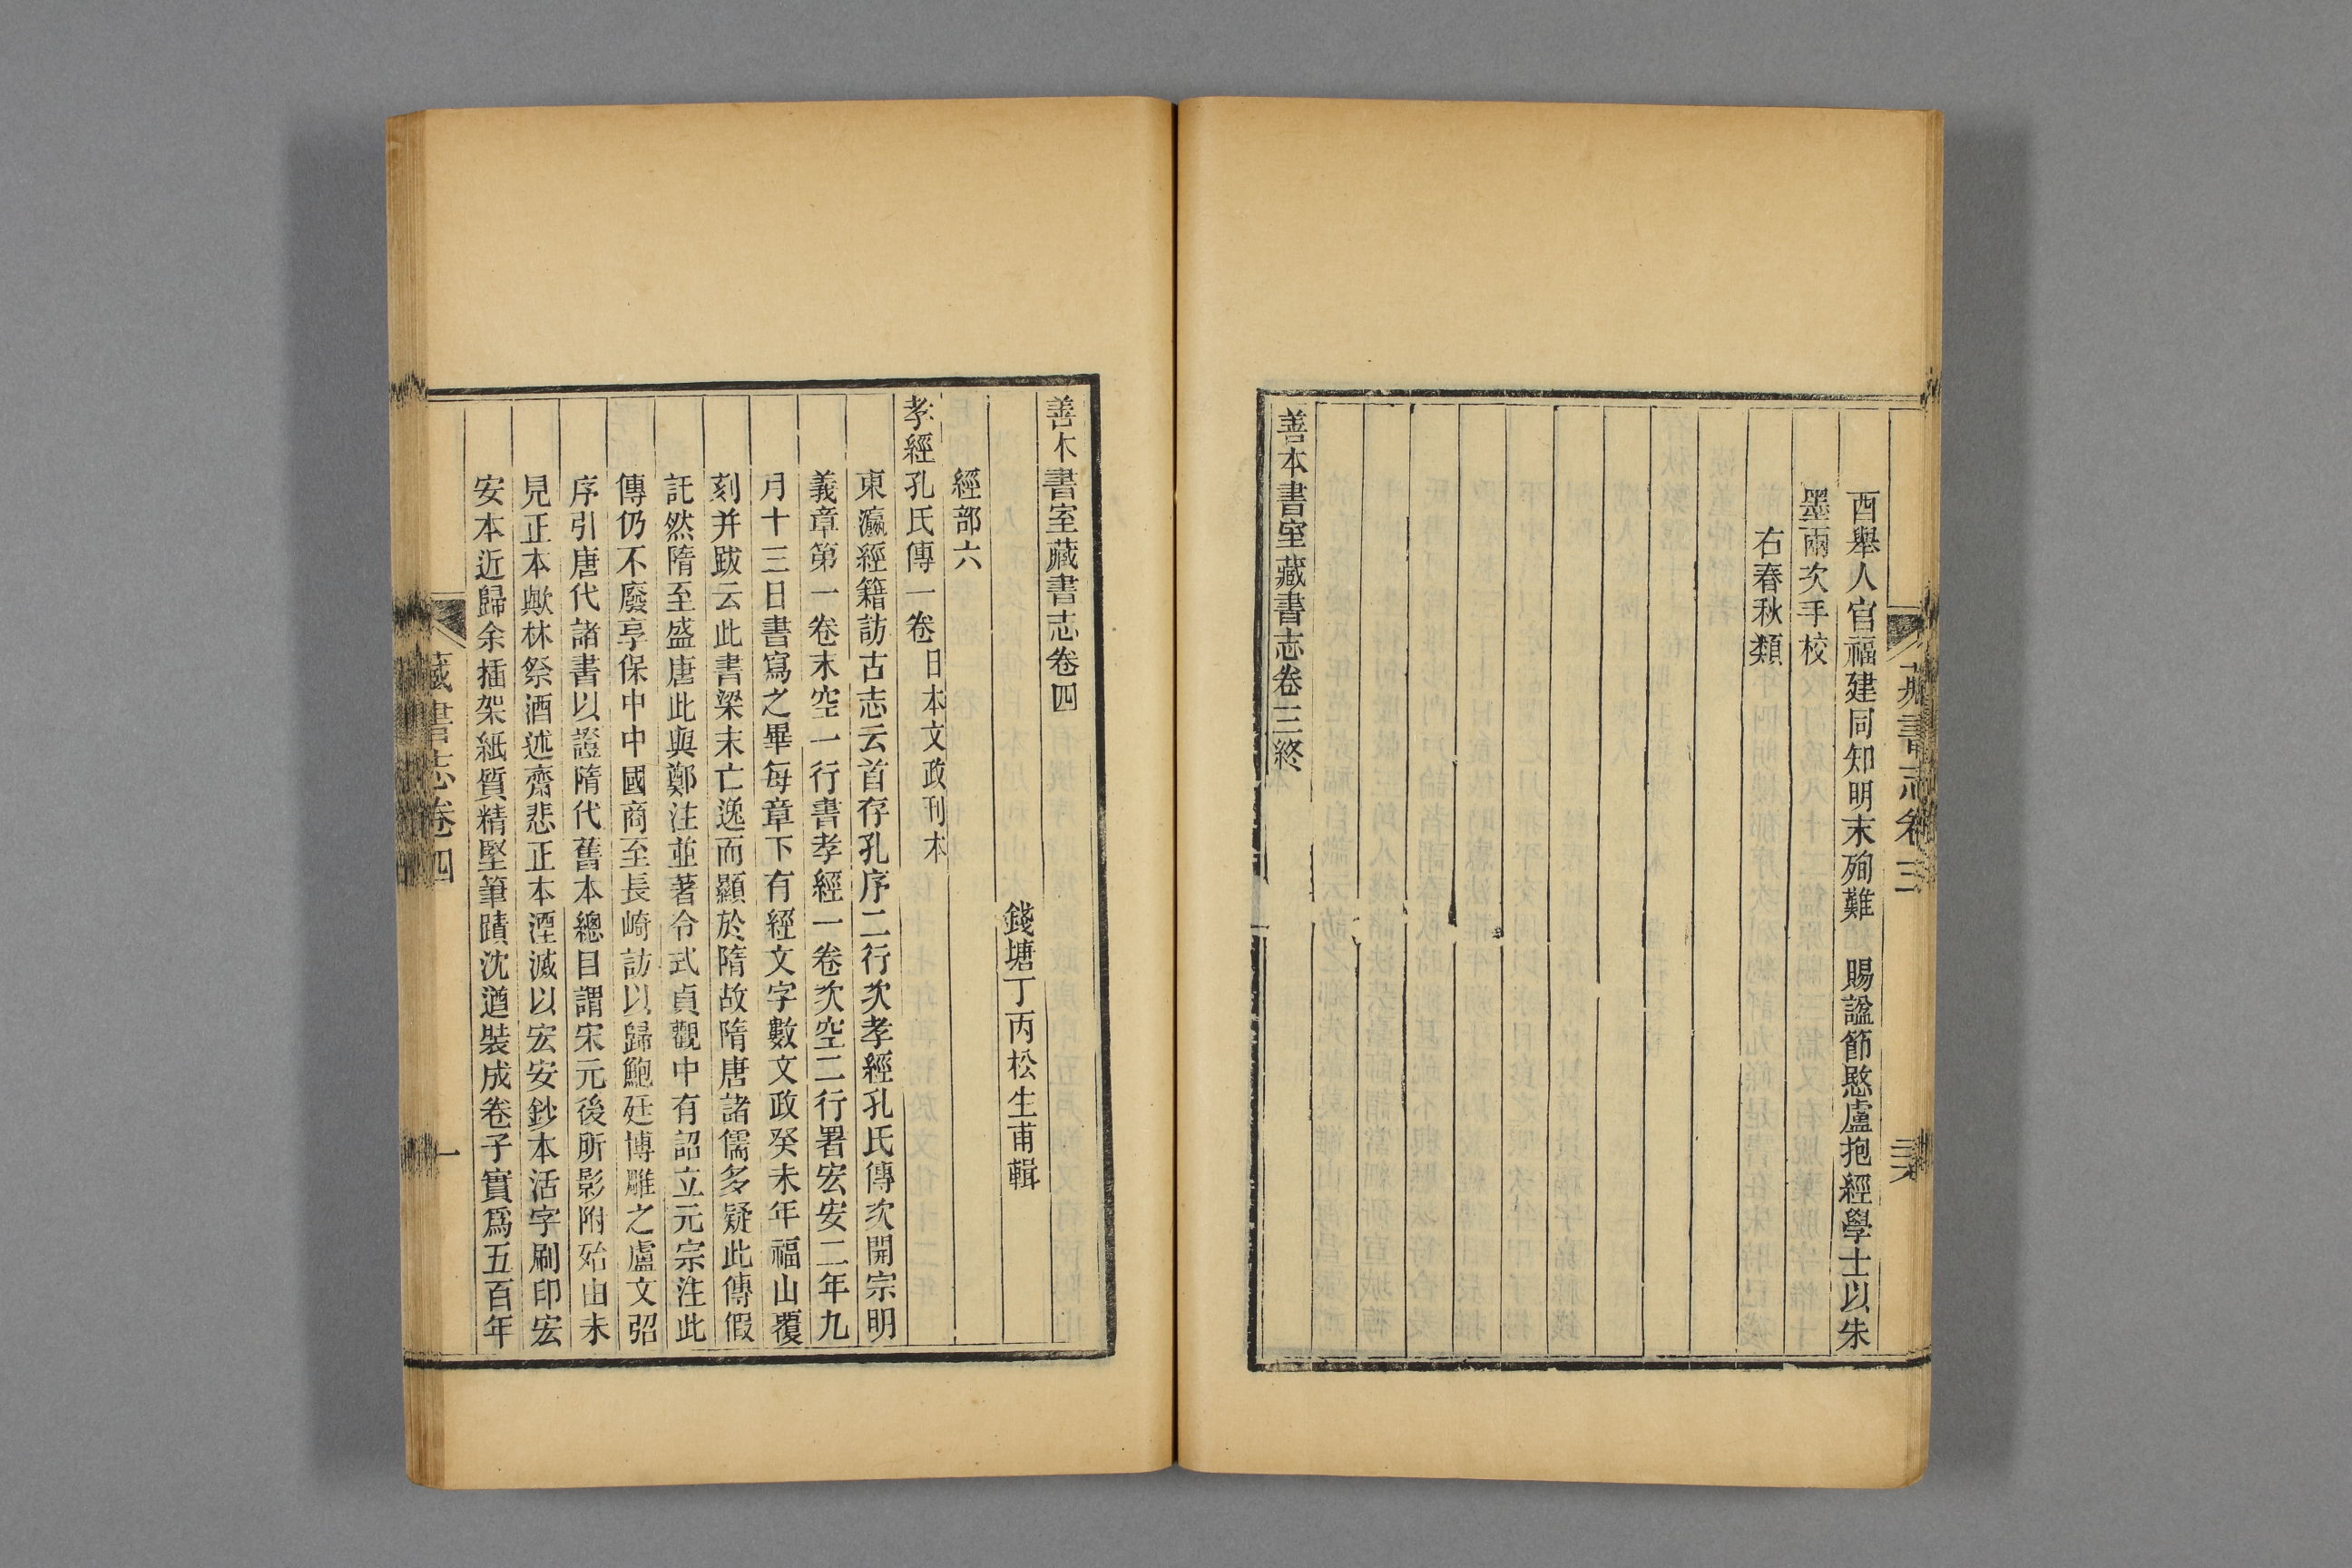 酉舉人官福建同知明末殉難　賜諡節愍盧抱經學士以朱
墨兩次手校
右春秋類
善本書室藏書志卷三終
善本書室藏書志卷四
錢塘丁丙松生甫輯
經部六
孝經孔氏傳一卷 日本文政刊本
東瀛經籍訪古志云首存孔序二行次孝經孔氏傳次開宗明
義章第一卷末空一行書孝經一卷次空二行署宏安二年九
月十三日書寫之畢每章下有經文字數文政癸未年福山覆
刻并跋云此書梁末亡逸而顯於隋故隋唐諸儒多疑此傳假
託然隋至盛唐此與鄭注並著令式貞觀中有詔立元宗注此
傳仍不廢享保中中國商至長崎訪以歸鮑廷博雕之盧文弨
序引唐代諸書以證隋代舊本總目謂宋元後所影附殆由未
見正本歟林祭酒述齋悲正本湮滅以宏安鈔本活字刷印宏
安本近歸余插架紙質精堅筆蹟沈遒裝成卷子實為五百年
藏書志卷四
一